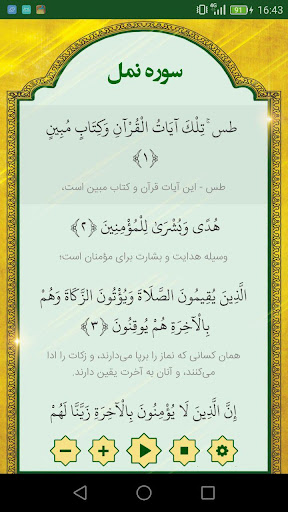 4G 91 16:43
سوره نمل
طس ۚ تِلْكَ آيَاتُ الْقُرْآنِ وَكِتَابٍ مُبِينٍ
﴿١﴾
طس - این آیات قرآن و کتاب مبین است،
هُدًى وَبُشْرَىٰ لِلْمُؤْمِنِينَ ﴿٢﴾
وسیله هدایت و بشارت برای مؤمنان است؛
الَّذِينَ يُقِيمُونَ الصَّلَاةَ وَيُؤْتُونَ الزَّكَاةَ وَهُمْ
بِالْآخِرَةِ هُمْ يُوقِنُونَ ﴿٣﴾
همان کسانی که نماز را برپا می‌دارند، و زکات را ادا
می‌کنند، و آنان به آخرت یقین دارند.
إِنَّ الَّذِينَ لَا يُؤْمِنُونَ بِالْآخِرَةِ زَيَّنَّا لَهُمْ